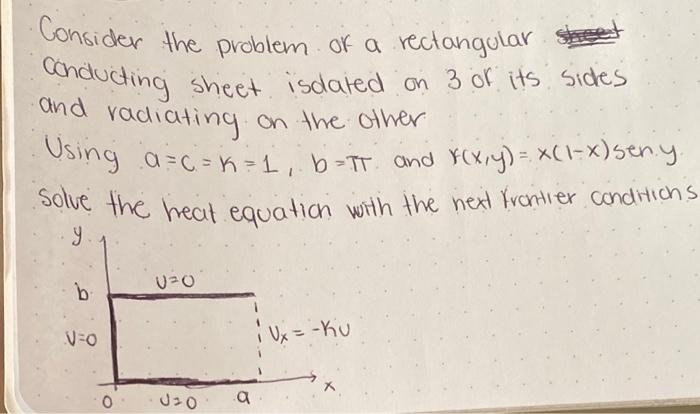 Consider the problem of a rectangular
conducting sheet isolated on 3 of its sides
and radiating on the other
Using a=c=K=1, b=π and f(x,y)=x(1-x)sen y
solve the heat equation with the next frontier conditions
y
b
U=0
U=0
Ux = -KU
0
U=0
a
x